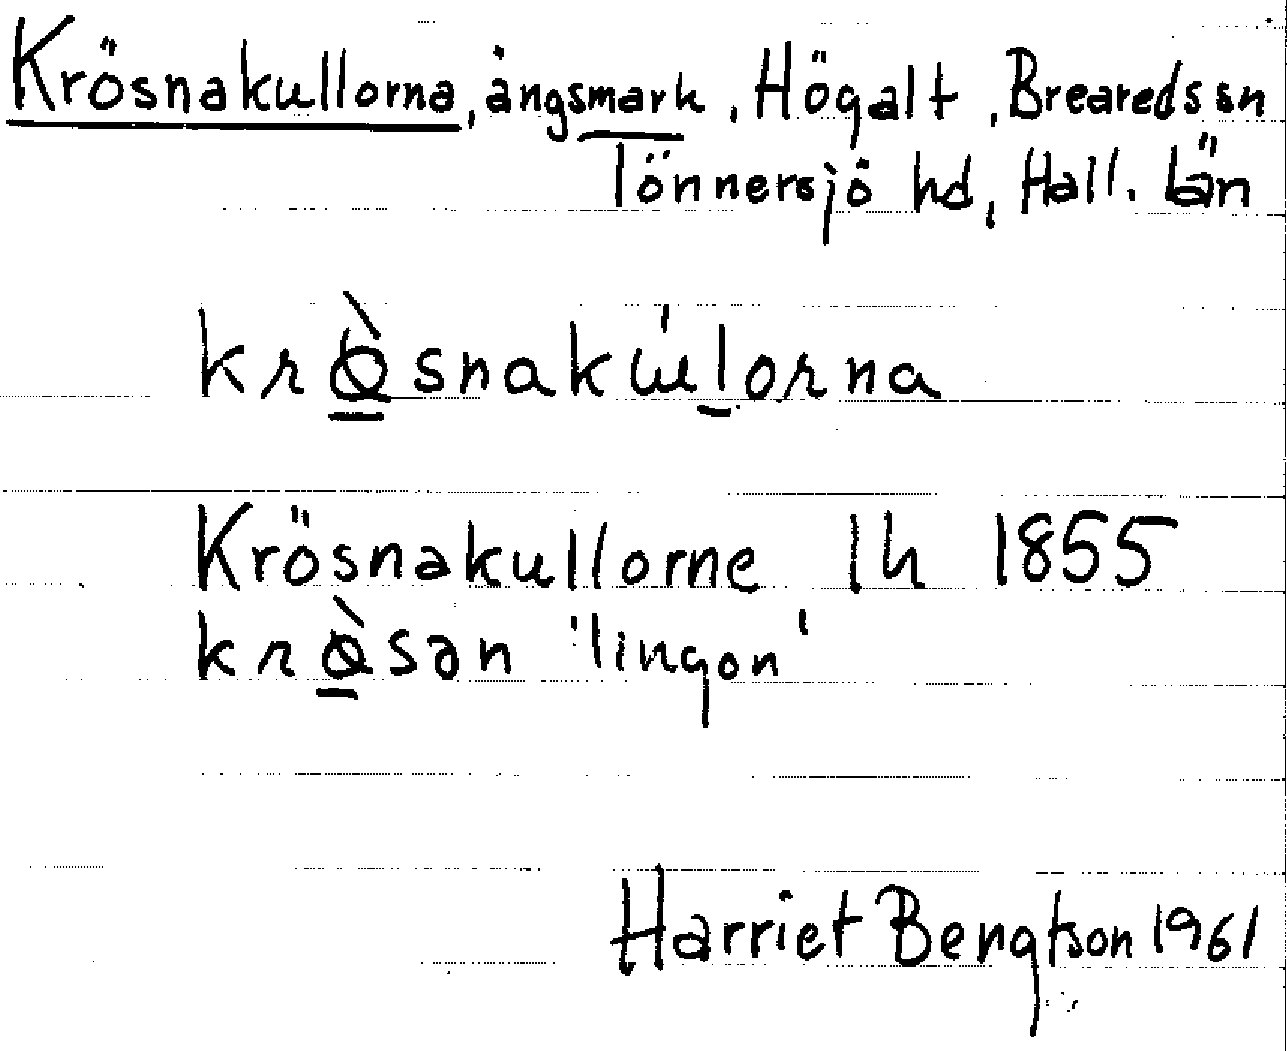 Krösnakullorna, ängsmark, Högalt, Breareds sn
Tönnersjö hd, Hall. län
krø̀snakúlorna
Krösnakullorne lh 1855
krø̀sən 'lingon'
Harriet Bengtson 1961